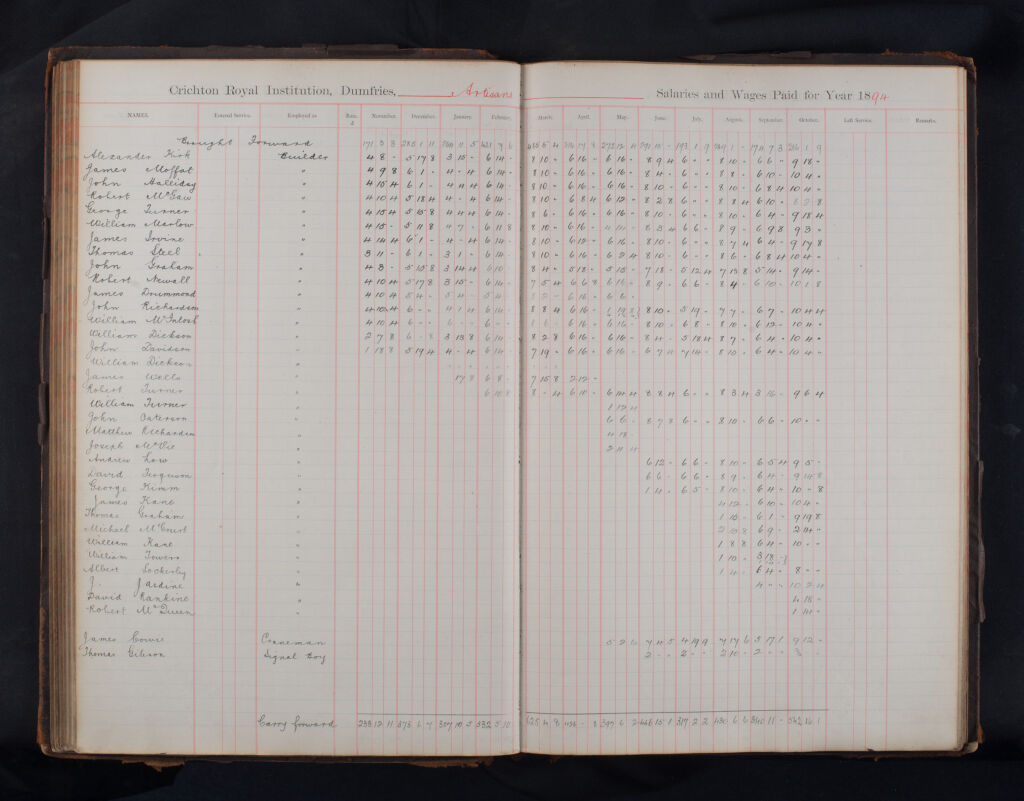 Crichton Royal Institution, Dumfries, Artisans Salaries and Wages Paid for Year 1894
NAMES. Entered Service. Employed as Rate. £ November. December. January. February. March. April. May. June. July. August. September. October. Left Service. Remarks.
Brought Forward
Alexander Kirk Builder 4 8 - 5 17 8 3 15 - 6 14 - 8 10 - 6 16 - 6 16 - 8 9 4 6 - - 8 10 - 6 6 - 9 18 -
James Moffat " 4 9 8 6 1 - 4 4 - 6 14 - 8 10 - 6 16 - 6 16 - 8 4 - 6 - - 8 8 - 6 10 - 10 4 -
John Halliday " 4 15 4 6 1 - 4 4 4 6 14 - 8 10 - 6 16 - 6 16 - 8 10 - 6 - - 8 10 - 6 8 4 10 4 -
Robert McGaw " 4 10 4 5 18 4 4 - 4 6 14 - 8 10 - 6 8 4 6 12 - 8 2 8 6 - - 8 8 4 6 10 -
George Turner " 4 15 4 5 15 8 4 4 4 6 14 - 8 6 - 6 16 - 6 16 - 8 10 - 6 - - 8 10 - 6 4 - 9 18 4
William Marlow " 4 15 - 5 11 8 4 7 - 6 11 8 8 10 - 6 16 - 8 3 4 6 6 - 8 9 - 6 9 8 9 3 -
James Irvine " 4 14 4 6 1 - 4 - 4 6 14 - 8 10 - 6 12 - 6 16 - 8 10 - 6 - - 8 7 4 6 4 - 9 17 8
Thomas Steel " 3 11 - 6 1 - 3 1 - 6 14 - 8 10 - 6 16 - 6 2 4 8 10 - 6 - - 8 6 - 6 8 4 10 4 -
John Graham " 4 3 - 5 15 8 3 14 4 6 10 - 8 4 - 5 18 - 5 15 - 7 18 - 5 12 4 7 13 8 5 14 - 9 14 -
Robert Newall " 4 10 4 5 17 8 3 15 - 6 14 - 7 5 4 6 6 8 6 16 - 8 9 - 6 6 - 8 4 - 6 10 - 10 1 8
James Drummond " 4 10 4 5 4 - 5 4 - 5 4 - 6 16 - 6 6 -
John Richardson " 4 10 4 6 - - 4 1 4 6 14 - 8 8 4 6 16 - 8 10 - 5 19 - 7 7 - 6 7 - 10 4 4
William McIntosh " 4 10 4 6 - - 6 - - 6 - - 6 16 - 6 16 - 8 10 - 6 8 - 8 10 - 6 12 - 10 4 -
William Dickson " 2 7 8 6 - 8 3 13 8 6 14 - 8 2 8 6 16 - 6 16 - 8 4 - 5 18 4 8 7 - 6 4 - 10 4 -
John Davidson " 1 18 8 5 19 4 4 - 4 6 14 - 7 19 - 6 16 - 6 16 - 6 7 4 7 14 - 8 10 - 6 4 - 10 4 -
William Dickson "
James Wells " 17 8 6 8 - 7 15 8 2 12 -
Robert Turner " 6 10 8 8 - 4 6 10 - 6 14 4 8 8 4 6 - - 8 3 4 3 16 - 9 6 4
William Turner " 1 12 4
John Paterson " 6 6 - 8 7 8 6 - - 8 10 - 6 6 - 10 - -
Matthew Richardson " 4 18 -
Joseph McVie " 2 11 4
Andrew Low " 6 12 - 6 6 - 8 10 - 6 5 4 9 5 -
David Ferguson " 6 6 - 6 6 - 8 9 - 6 4 - 9 14 8
George Kimm " 1 4 - 6 5 - 8 10 - 6 4 - 10 - 8
James Kane " 4 12 - 6 10 - 10 4 -
Thomas Graham " 1 10 - 6 1 - 9 19 8
Michael McCourt " 2 10 8 6 9 - 2 14 -
William Kane " 1 8 8 6 4 - 10 - -
William Towers " 1 10 - 3 18 -
Albert Lockerby " 1 4 - 6 4 - 8 - -
J. Jardine " 4 - - 10 2 4
David Rankine " 4 18 -
Robert McQueen " 1 14 -
James Cowie Craneman 5 2 6 7 4 5 4 19 9 7 17 6 5 17 1 9 12 -
Thomas Gibson Signal Boy 2 - - 2 - - 2 10 - 2 - - 3 - -
Carry forward 233 12 11 373 6 7 307 10 5 532 5 10 625 4 8 496 - 8 397 6 2 446 15 1 317 2 2 430 6 6 340 11 - 542 16 1